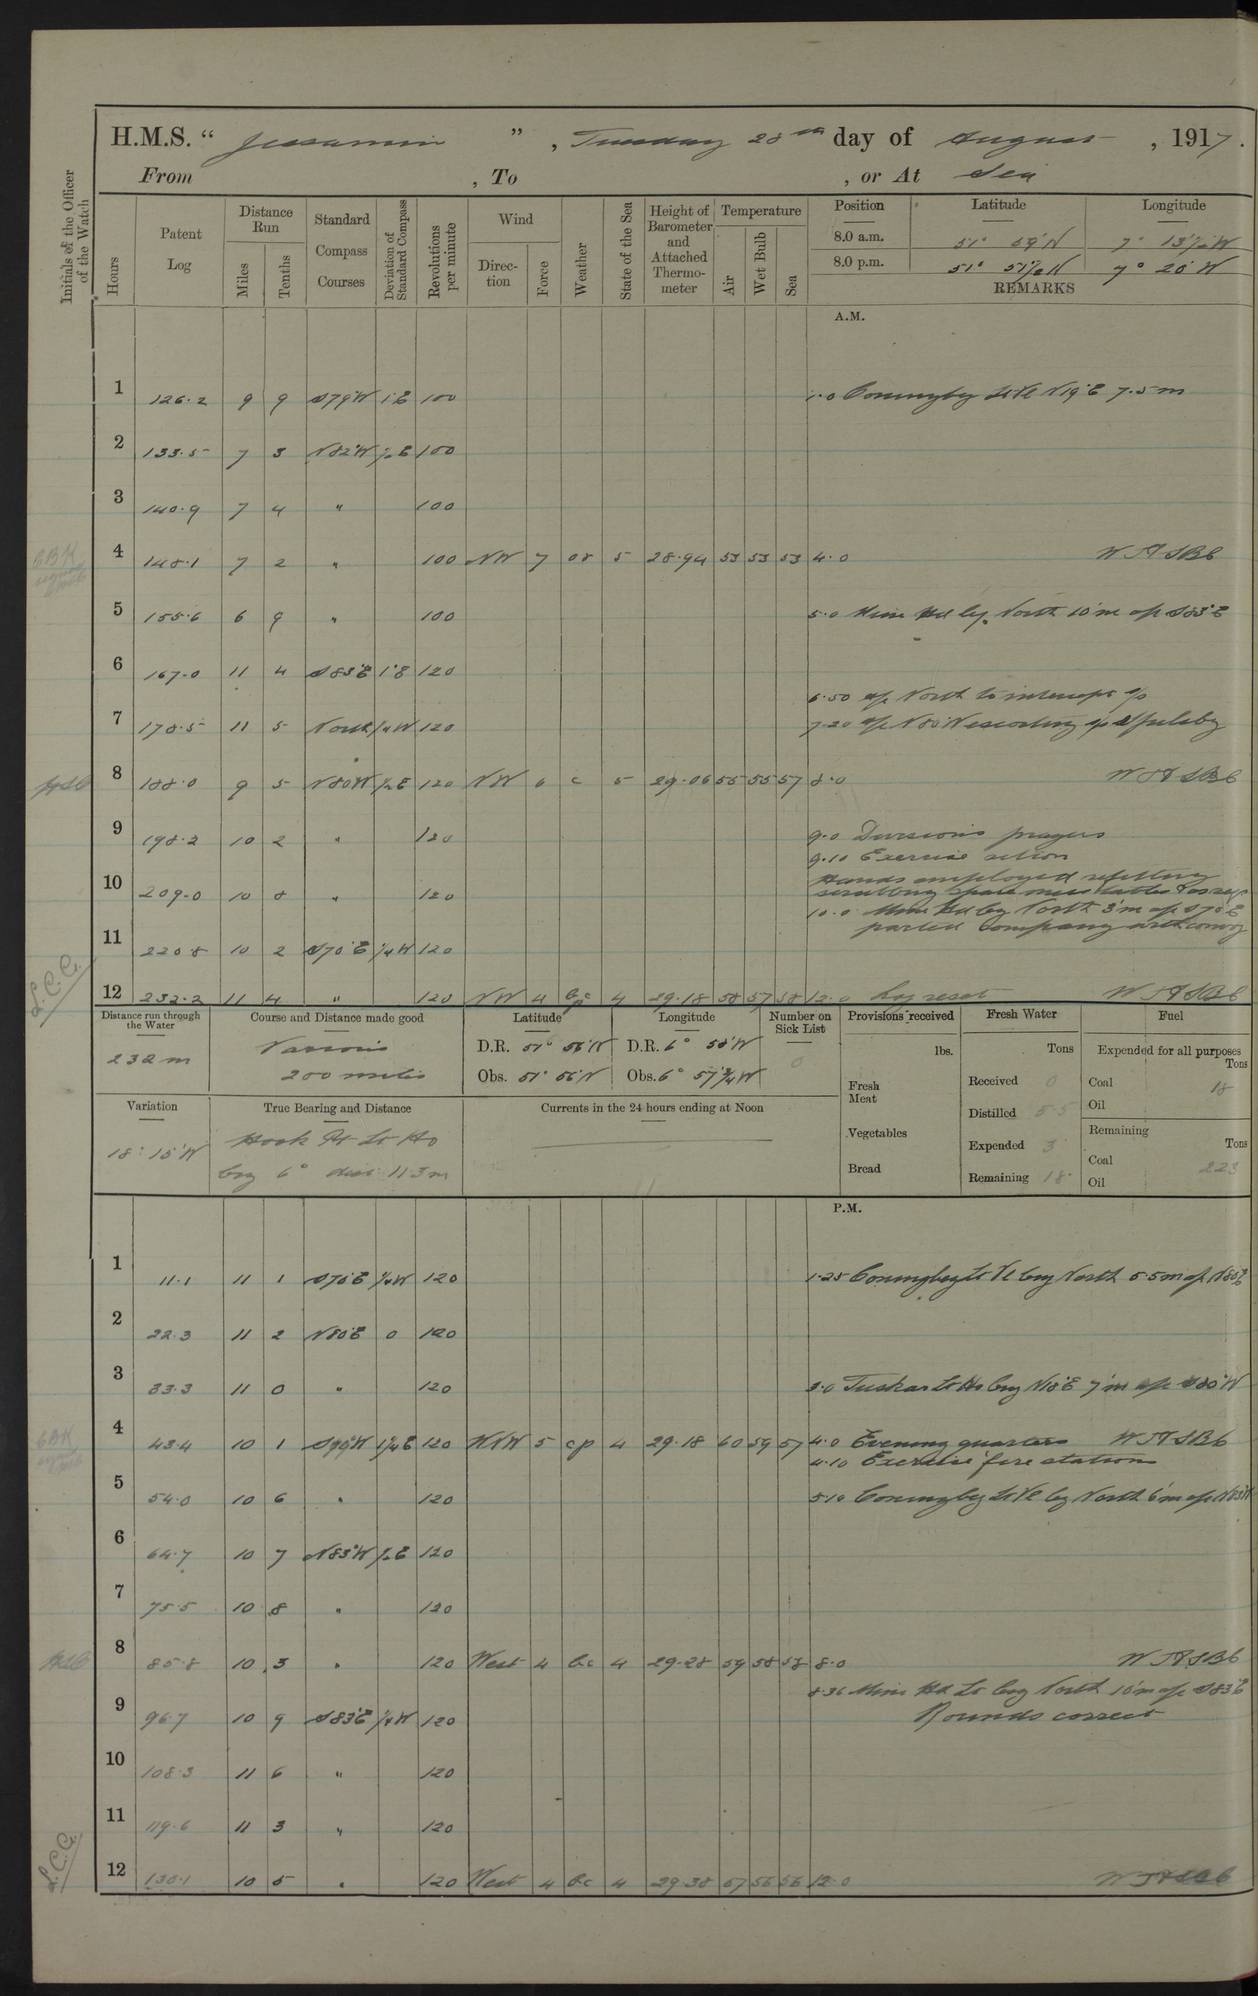 H.M.S. " Jessamine " , Tuesday 28th day of August , 1917.
From , To , or At Sea
Initials of the Officer of the Watch
Hours
Patent Log
Distance Run
Miles
Tenths
Standard Compass Courses
Deviation of Standard Compass
Revolutions per minute
Wind
Direction
Force
Weather
State of the Sea
Height of Barometer and Attached Thermometer
Temperature
Air
Wet Bulb
Sea
Position Latitude Longitude
8.0 a.m. 51° 59'N 7° 13½'W
8.0 p.m. 51° 51½'N 7° 20'W
REMARKS
A.M.
1 126.2 9 9 S79°W 1°E 100 1.0 Coningbeg Lt Vl N19°E 7.5m
2 133.5 7 3 N82°W ½E 100
3 140.9 7 4 " 100
4 148.1 7 2 " 100 NW 7 or 5 28.94 53 53 53 4.0
5 155.6 6 9 " 100 5.0 Mine Hd by. North 10'm a/c S83°E
6 167.0 11 4 S83°E 1°E 120
6.50 a/c North to intercept s/s
7 178.5 11 5 North ¼W 120 7.20 a/c N80W escorting s/s
8 188.0 9 5 N80W ½E 120 NW 6 c 5 29.06 55 55 57 8.0
9 198.2 10 2 " 120 9.0 Divisions prayers
9.10 Exercise action
Hands employed refitting
10 209.0 10 8 " 120 scrubbing spare mess tables
10.0 Mine Hd by North 3'm a/c S70°E
11 220.8 10 2 S70°E ¼W 120 parted company with convoy
12 232.2 11 4 " 120 NW 4 29.18 58 57 58 12.0 Log reset
Distance run through the Water
232 m
Course and Distance made good
Various
200 miles
Latitude Longitude
D.R. 51° 56'N D.R. 6° 58'W
Obs. 51° 56'N Obs. 6° 57¾'W
Number on Sick List
0
Provisions received
lbs.
Fresh Meat
Vegetables
Bread
Fresh Water
Tons
Received 0
Distilled 5.5
Expended 3
Remaining 18
Fuel
Expended for all purposes
Tons
Coal 18
Oil
Remaining
Tons
Coal 223
Oil
Variation
18° 15'W
True Bearing and Distance
Hook Pt Lt Ho
brg 6° dist 11.3m
Currents in the 24 hours ending at Noon
P.M.
1 11.1 11 1 S70°E ¼W 120 1.25 Coningbeg Lt Vl brg North 5.5m a/c
2 22.3 11 2 N80°E 0 120
3 33.3 11 0 " 120 3.0 Tuskar Lt Ho brg N18°E 7'm a/c S80°W
4 43.4 10 1 1¼E 120 WNW 5 cp 4 29.18 60 59 57 4.0 Evening quarters
4.10 Exercise fire stations
5 54.0 10 6 " 120 5.10 Coningbeg Lt Vl by North 6'm a/c N83W
6 64.7 10 7 N83°W ½E 120
7 75.5 10 8 " 120
8 85.8 10 3 " 120 West 4 bc 4 29.28 59 58 58 8.0
8.36 Mine Hd Lt brg North 10'm a/c S83°E
9 96.7 10 9 S83°E ¼W 120 Rounds correct
10 108.3 11 6 " 120
11 119.6 11 3 " 120
12 130.1 10 5 " 120 West 4 bc 4 29.38 57 56 56 12.0